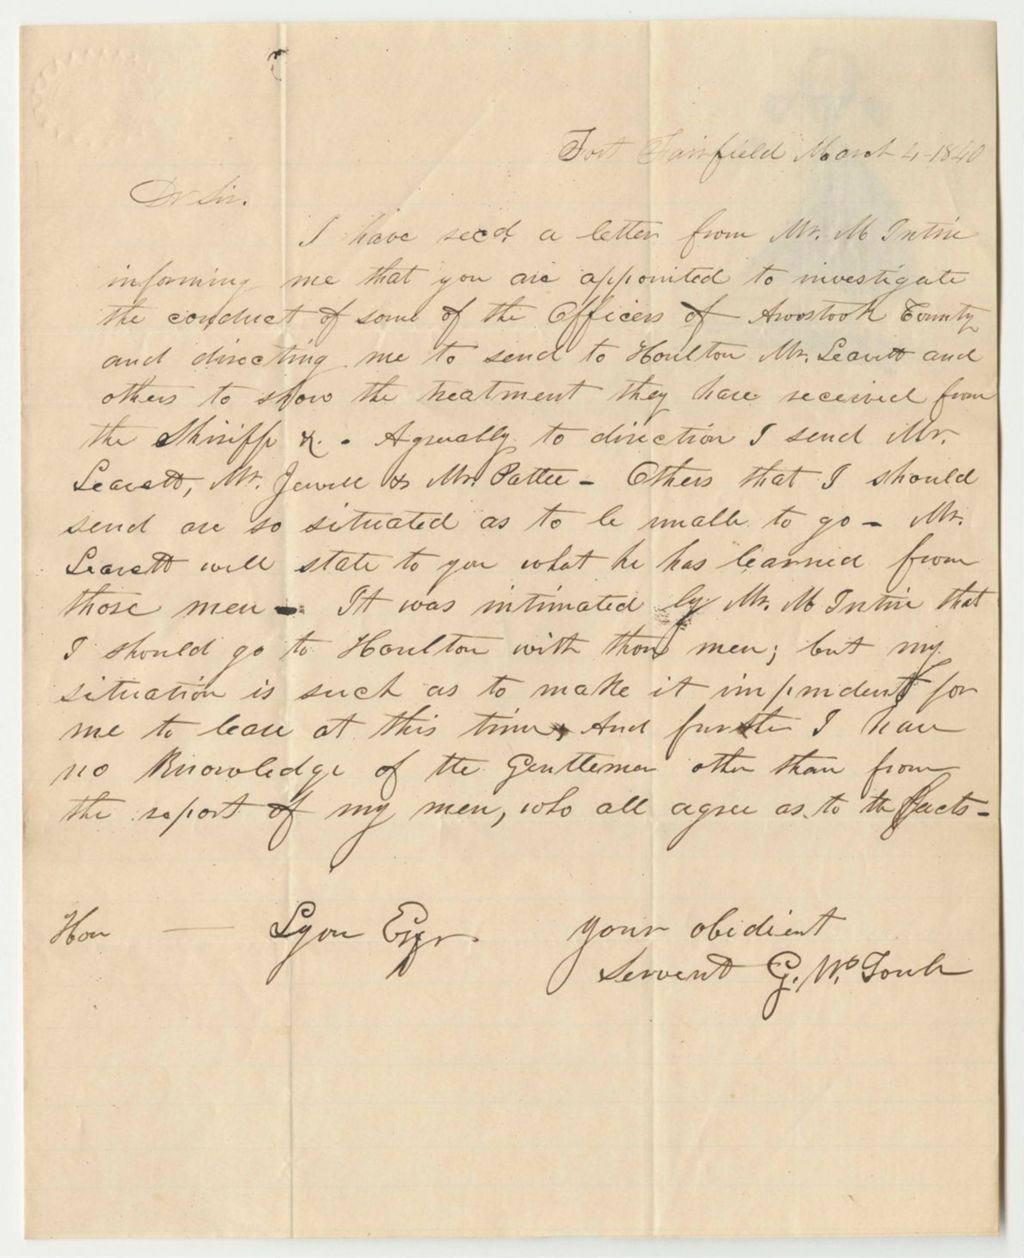 Fort Fairfield March 4-1840
Dr Sir.
I have recd. a letter from Mr. Mc Intire
informing me that you are appointed to investigate
the conduct of some of the Officers of Aroostook County
and directing me to send to Houlton Mr. Leavett and
others to show the treatment they have received from
the Shiriff &. - Agreeably to direction I send Mr.
Leavett, Mr. Jewell & Mr Pattee - Others that I should
send are so situated as to be unable to go - Mr.
Leavett will state to you what he has learned from
those men - It was intimated by Mr. Mc Intire that
I should go to Houlton with those men; but my
situation is such as to make it imprudent for
me to leave at this time, And further I have
no Knowledge of the Gentlemen other than from
the report of my men, who all agree as to the facts -
Hon — Lyon Esqr. your obidient
Servent G. W.